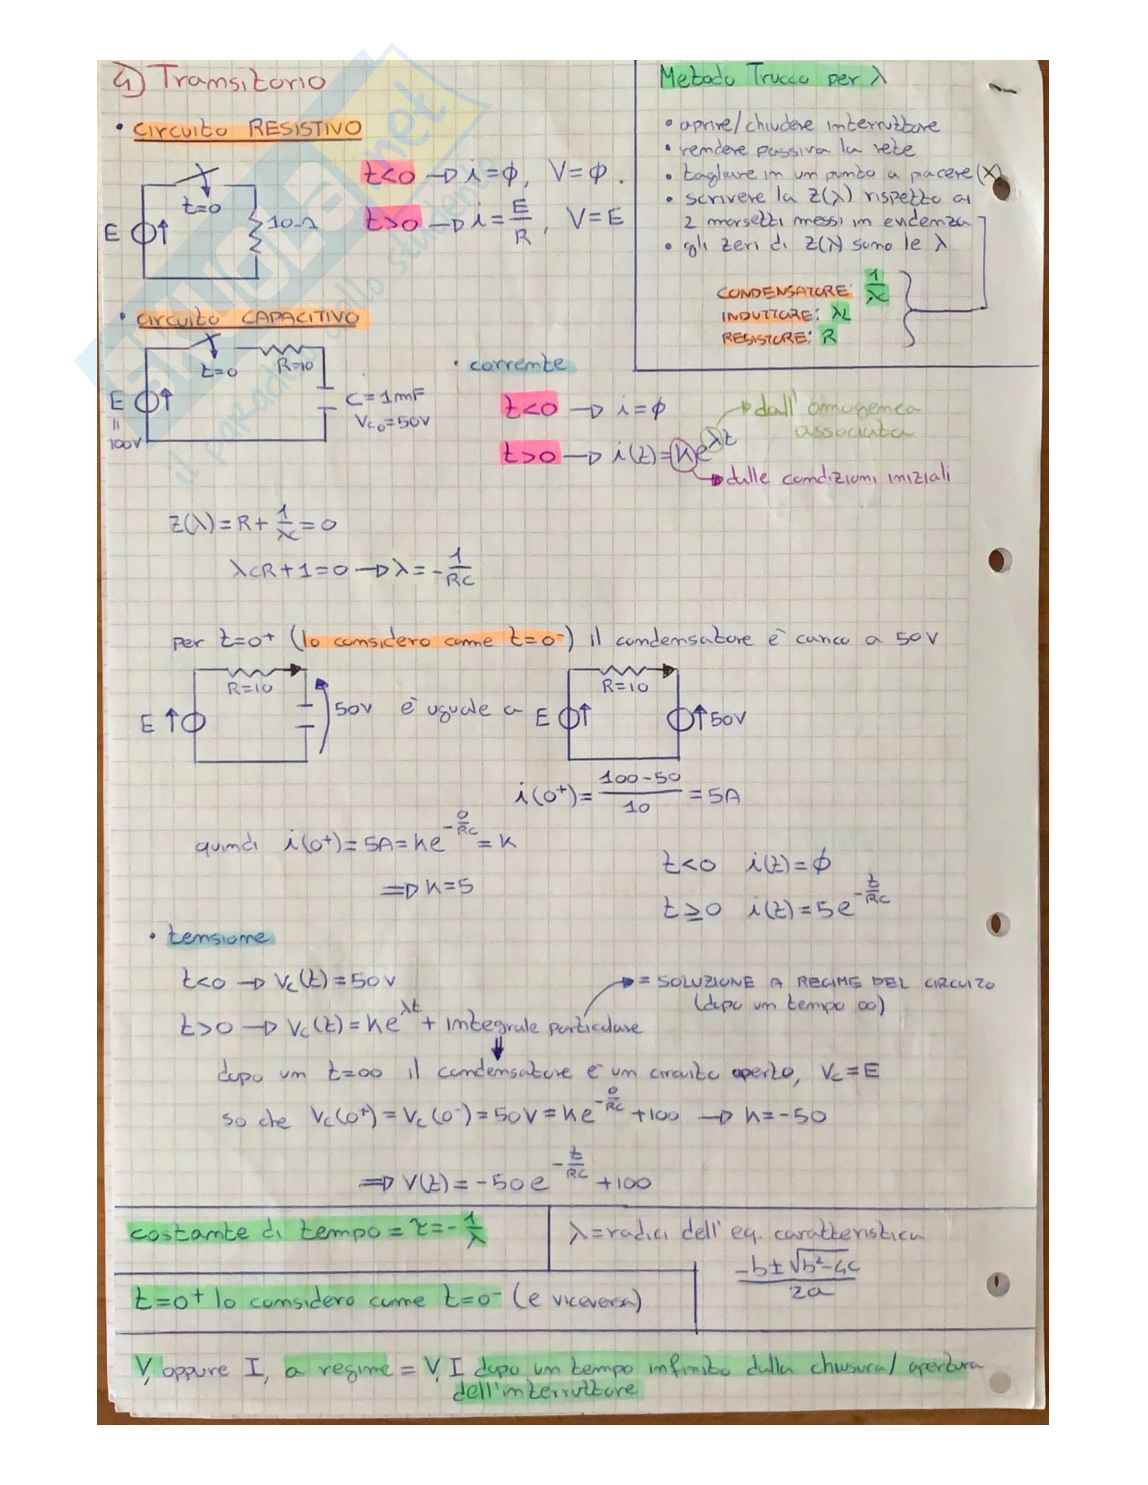 4) Transitorio
• circuito RESISTIVO
t<0 → i=ϕ, V=ϕ.
t>0 → i=E/R, V=E
E
t=0
10Ω
Metodo Trucco per λ
• aprire/chiudere interruttore
• rendere passiva la rete
• tagliare in un punto a piacere (X)
• scrivere la Z(λ) rispetto ai
2 morsetti messi in evidenza
• gli zeri di Z(λ) sono le λ
CONDENSATORE: 1/λC
INDUTTORE: λL
RESISTORE: R
• circuito CAPACITIVO
t=0
R=10
E
=
100V
C=1mF
Vc₀=50V
• corrente
t<0 → i=ϕ
t>0 → i(t)=ke^λt
dall'omogenea
associata
dalle condizioni iniziali
Z(λ)=R+1/λC=0
λCR+1=0 → λ=-1/RC
per t=0⁺ (lo considero come t=0⁻) il condensatore è carico a 50V
R=10
E
50V
è uguale a
E
R=10
50V
i(0⁺)=(100-50)/10=5A
quindi i(0⁺)=5A=ke^(-0/RC)=k
⇒ k=5
t<0 i(t)=ϕ
t≥0 i(t)=5e^(-t/RC)
• tensione
t<0 → Vc(t)=50V
= SOLUZIONE A REGIME DEL CIRCUITO
(dopo un tempo ∞)
t>0 → Vc(t)=ke^λt + integrale particolare
dopo un t=∞ il condensatore è un circuito aperto, Vc=E
so che Vc(0⁺)=Vc(0⁻)=50V=ke^(-0/RC)+100 → k=-50
⇒ V(t)=-50e^(-t/RC)+100
costante di tempo = τ=-1/λ
λ=radici dell'eq. caratteristica
(-b±√(b²-4c))/2a
t=0⁺ lo considero come t=0⁻ (e viceversa)
V, oppure I, a regime = V, I dopo un tempo infinito dalla chiusura/apertura
dell'interruttore